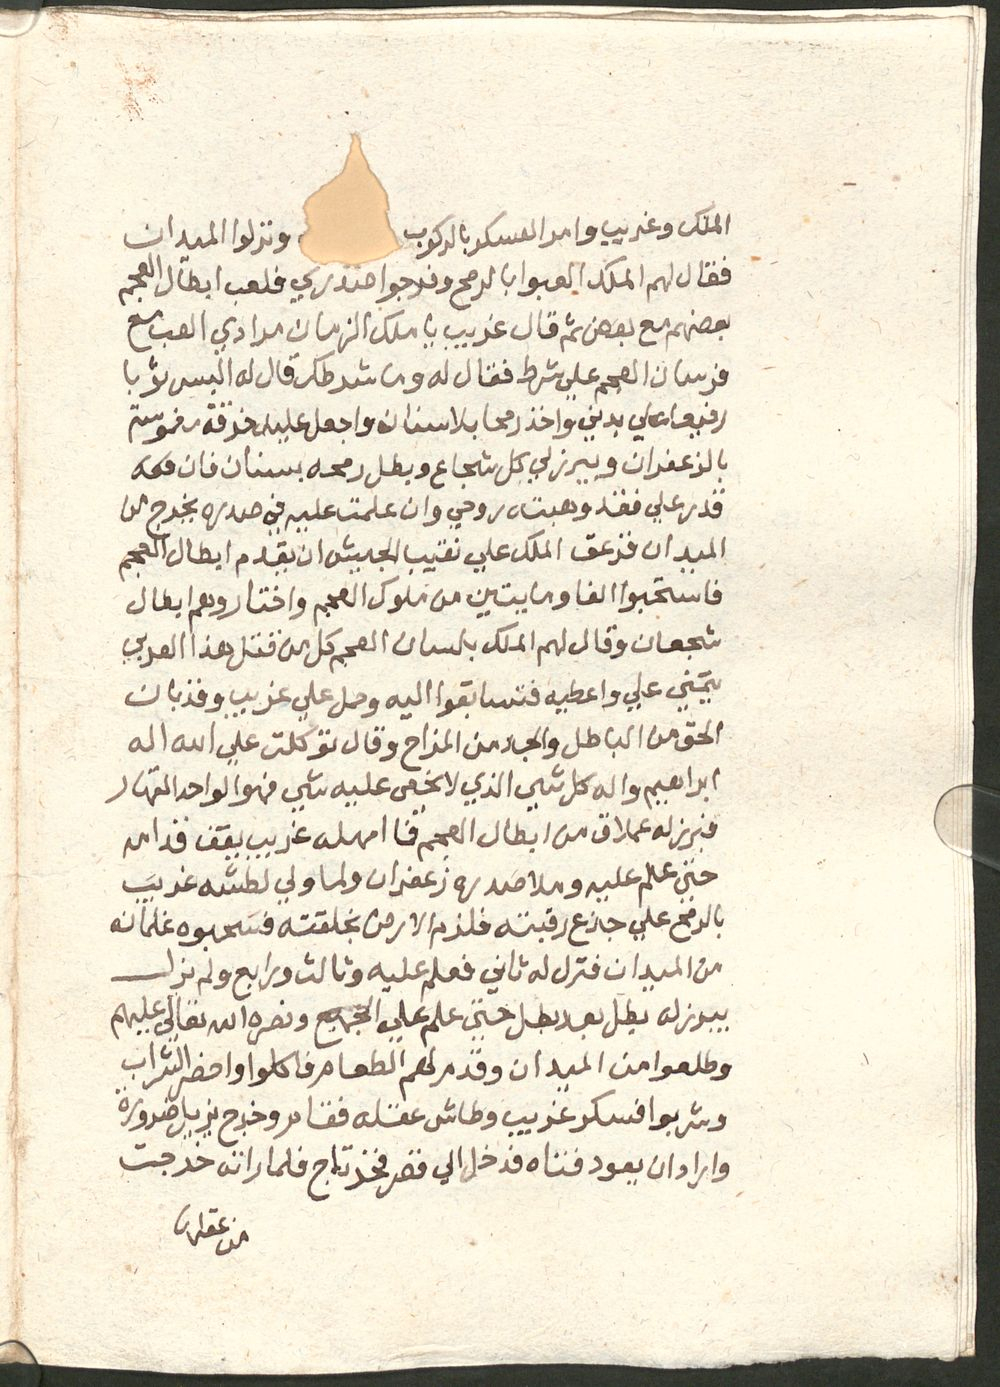 الملك وغريب وامر العسكر بالركوب ونزلوا الميدان
فقال لهم الملك العبوا بالرمح وفرجوا صدري فلعب ابطال العجم
بعضهم مع بعض ثم قال غريب يا ملك الزمان مرادي العب مع
فرسان العجم علي شرط فقال له وما شرطك قال له البس ثوبا
رفيعا علي بدني واخذ رمحا بلا سنان واجعل عليه خرقة مغموسة
بالزعفران ويبرز لي كل شجاع وبطل رمحه بسنان فان
قدر علي فقد وهبته روحي وان علمت عليه في صدره يخرج من
الميدان فزعق الملك علي نقيب الجيش ان يقدم ابطال العجم
فاستخبوا الفا ومايتين من ملوك العجم واختاروهم ابطال
شجعان وقال لهم الملك بلسان العجم كل من قتل هذا العربي
يتمني علي واعطيه فتسابقوا اليه وحمل علي غريب وقد بان
الحق من الباطل والجد من المزاح وقال توكلت علي الله اله
ابراهيم واله كل شي الذي لا يخفي عليه شي فهو الواحد القهار
فبرز له عملاق من ابطال العجم فما امهله غريب يقف قدامه
حتي علم عليه وملا صدره زعفران ولما ولي لطشه غريب
بالرمح علي جذع رقبته فلزم الارض بخلقته فسحبوه غلمانه
من الميدان فنزل له ثاني فعلم عليه وثالث ورابع ولم يزل
يبرز له بطل بعد بطل حتي علم علي الجميع ونصره الله تعالي عليهم
وطلعوا من الميدان وقدم لهم الطعام فاكلوا واحضر الشراب
وشربوا فسكر غريب وطاش عقله فقام وخرج يزيل ضرورة
واراد ان يعود فتاه فدخل الي قصر فخذ تاج فلما راته خرجت
من عقلها